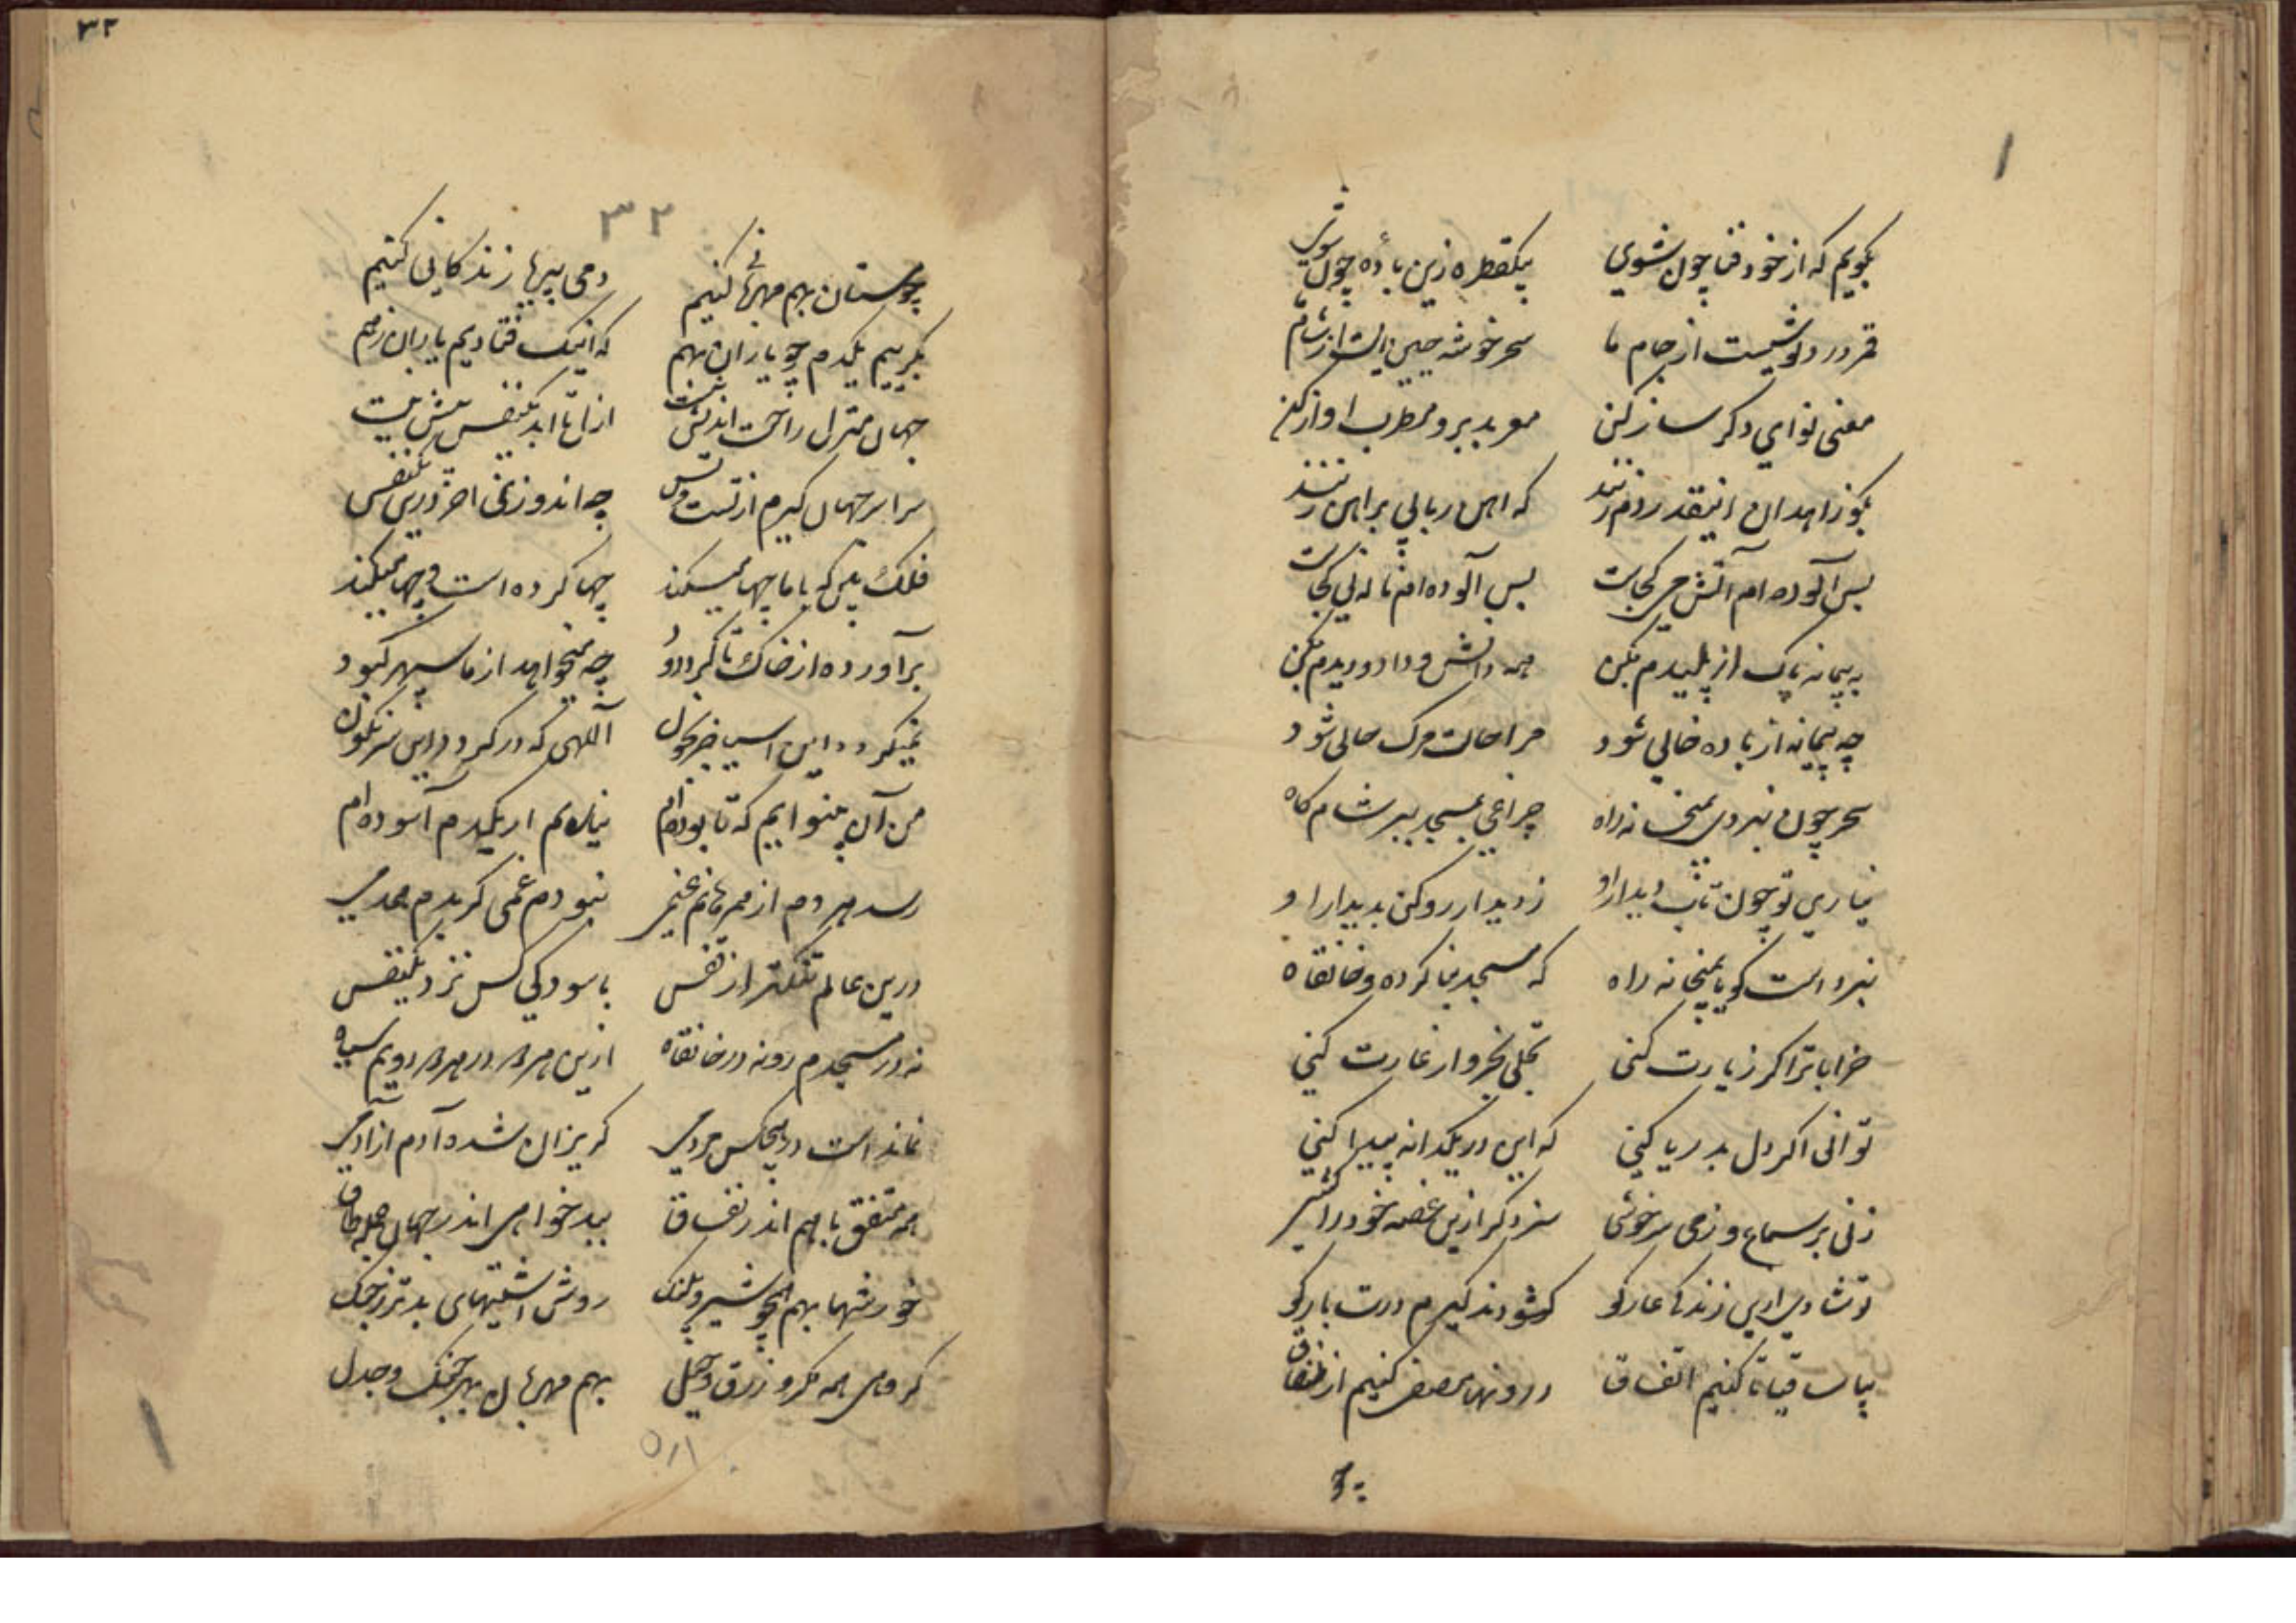 بگویم که از خود فنا چون شوی یکقطره زین باده چون شوی
قمر درد نوشیست از جام ما سحر خوشه چین است از شام ما
مغنی نوای دکر ساز کن
بکو زاهدان اینقدر دم زنند که اهن ربایی بر اهن زنند
بس آلوده ام آتش می کجاست بس آلوده ام ناله نی کجاست
به پیمانه پاک از پلیدم بکن همه دانش و داد و دیدم بکن
چه پیمانه از باده خالی شود مرا حالت مرک حالی شود
سحر چون نبردی بمیخانه راه چراغی بمسجد ببر شام کاه
نیاری تو چون تاب دیدار او ز دیدار رو کن بدیدار او
نبرد است کویا بمیخانه راه که مسجد بنا کرده و خانقاه
خراباترا کر زیارت کنی تجلی بخروار غارت کنی
توانی اکر دل بدریا کنی که این در یکدانه پیدا کنی
زنی بر سماع و ز می سرخوشی سزد کر ازین غصه خود را کشی
تو شادی ازین زندکی عار کو کشودند کیرم درت بار کو
بیا ساقیا تا کنیم اتفاق درونها مصفی کنیم از نفاق
۳۲
۳۲
چو مستان بهم مهربانی کنیم دمی بیریا زندکانی کنیم
بکرییم یکدم چو باران بهم که اینک فتادیم یاران ز هم
جهان منزل راحت اندیش نیست ازل تا ابد یکنفس بیش نیست
سراسر جهان کیرم از تست و بس چه اندوزی اخر درین یکنفس
فلک بین که با ما چها میکند چها کرده است و چها میکند
برآورده از خاک ما کرد و دود چه میخواهد از ما سپهر کبود
نمیکردد این اسیا جز بخون الهی که در کردد این سرنکون
من آن بینوایم که تا بوده ام نیاسایم ار یکدم آسوده ام
رسد هر دم از همدمانم غمی نبودم غمی کر بدم همدمی
درین عالم تنکتر از قفس باسودکی کس نزد یکنفس
نه در مسجدم رو نه در خانقاه ازین هر دو در هر دو رویم سیاه
نماند است در هیچکس مردمی کریزان شده آدم از آدمی
همه متفق با هم اندر نفاق ببدخواهی اندر جهان جمله طاق
خورشها بهم همچو شیر و پلنک روش اشتیهای بدتر ز جنک
کروهی همه مکر و زرق و حیل بهم مهربان بهر جنک و جدل